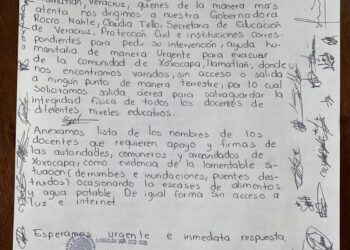 Ilamatlán, Veracruz, quienes de la manera más
atenta nos dirigimos a nuestra Gobernadora
Rocío Nahle, Claudia Tello, Secretaria de Educación
de Veracruz, Protección Civil e instituciones corres-
pondientes para pedir su intervención y Ayuda hu-
manitaria de manera Urgente para evacuar
de la comunidad de Xoxocapa, Ilamatlan, donde
nos encontramos varados, sin acceso o salida
a ningún punto de manera terrestre, por lo cual
Solicitamos salida aérea para salvaguardar la
integridad física de todos los docentes de
diferentes niveles educativos.
Anexamos lista de los nombres de los
docentes que requieren apoyo y firmas de
las autoridades, comuneros y avecindados de
Xoxocapa, como evidencia de la lamentable si-
tuación (derrumbes e inundaciones, puentes des-
truidos) ocasionando la escases de alimentos
y agua potable. De igual forma Sin acceso a
luz e internet.
Esperamos urgente e inmediata respuesta
ILAMATLÁN, VER.